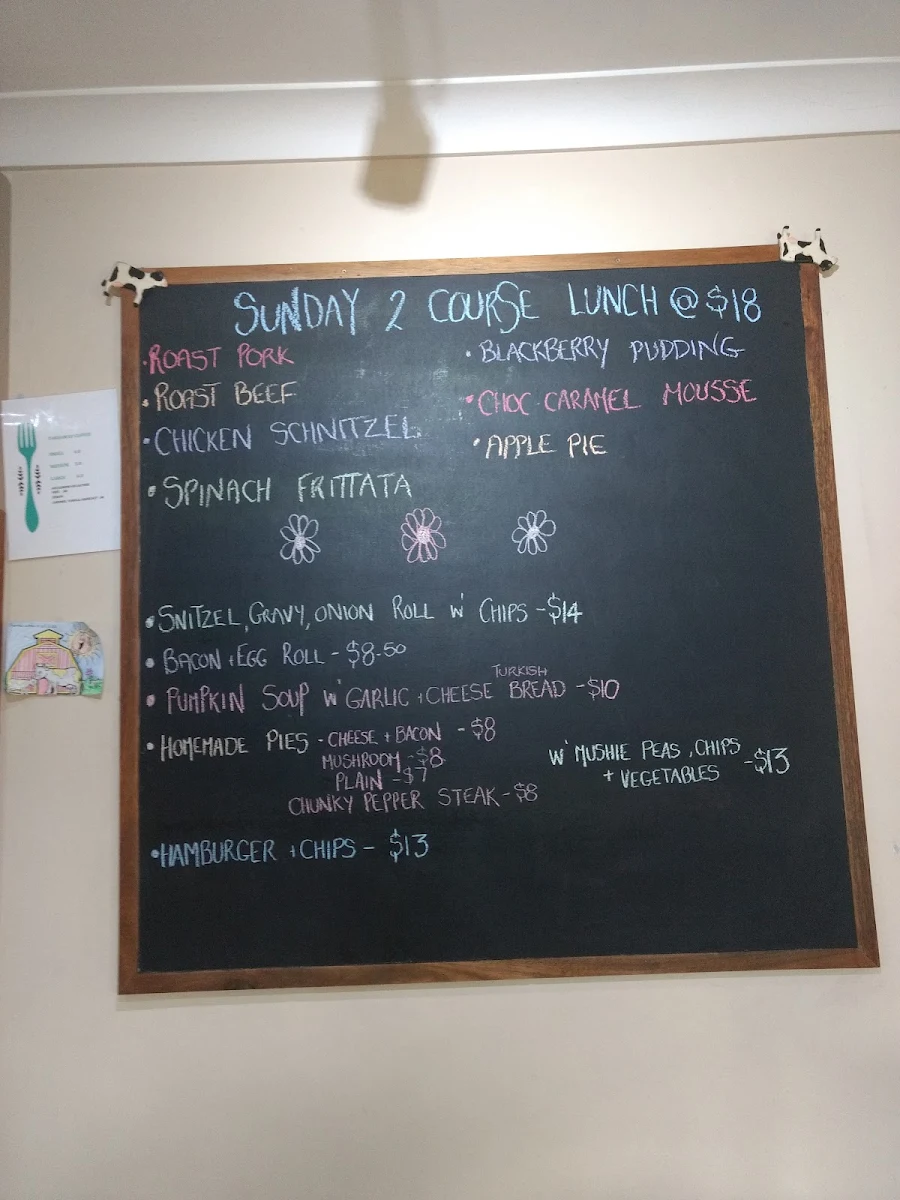 SUNDAY 2 COURSE LUNCH @ $18
• ROAST PORK
• ROAST BEEF
• CHICKEN SCHNITZEL
• SPINACH FRITTATA
• BLACKBERRY PUDDING
• CHOC CARAMEL MOUSSE
• APPLE PIE
• SNITZEL, GRAVY, ONION ROLL W' CHIPS - $14
• BACON + EGG ROLL - $8.50
TURKISH
• PUMPKIN SOUP W' GARLIC + CHEESE BREAD - $10
• HOMEMADE PIES - CHEESE + BACON - $8
MUSHROOM - $8
PLAIN - $7
CHUNKY PEPPER STEAK - $8
W' MUSHIE PEAS, CHIPS
+ VEGETABLES - $13
• HAMBURGER + CHIPS - $13